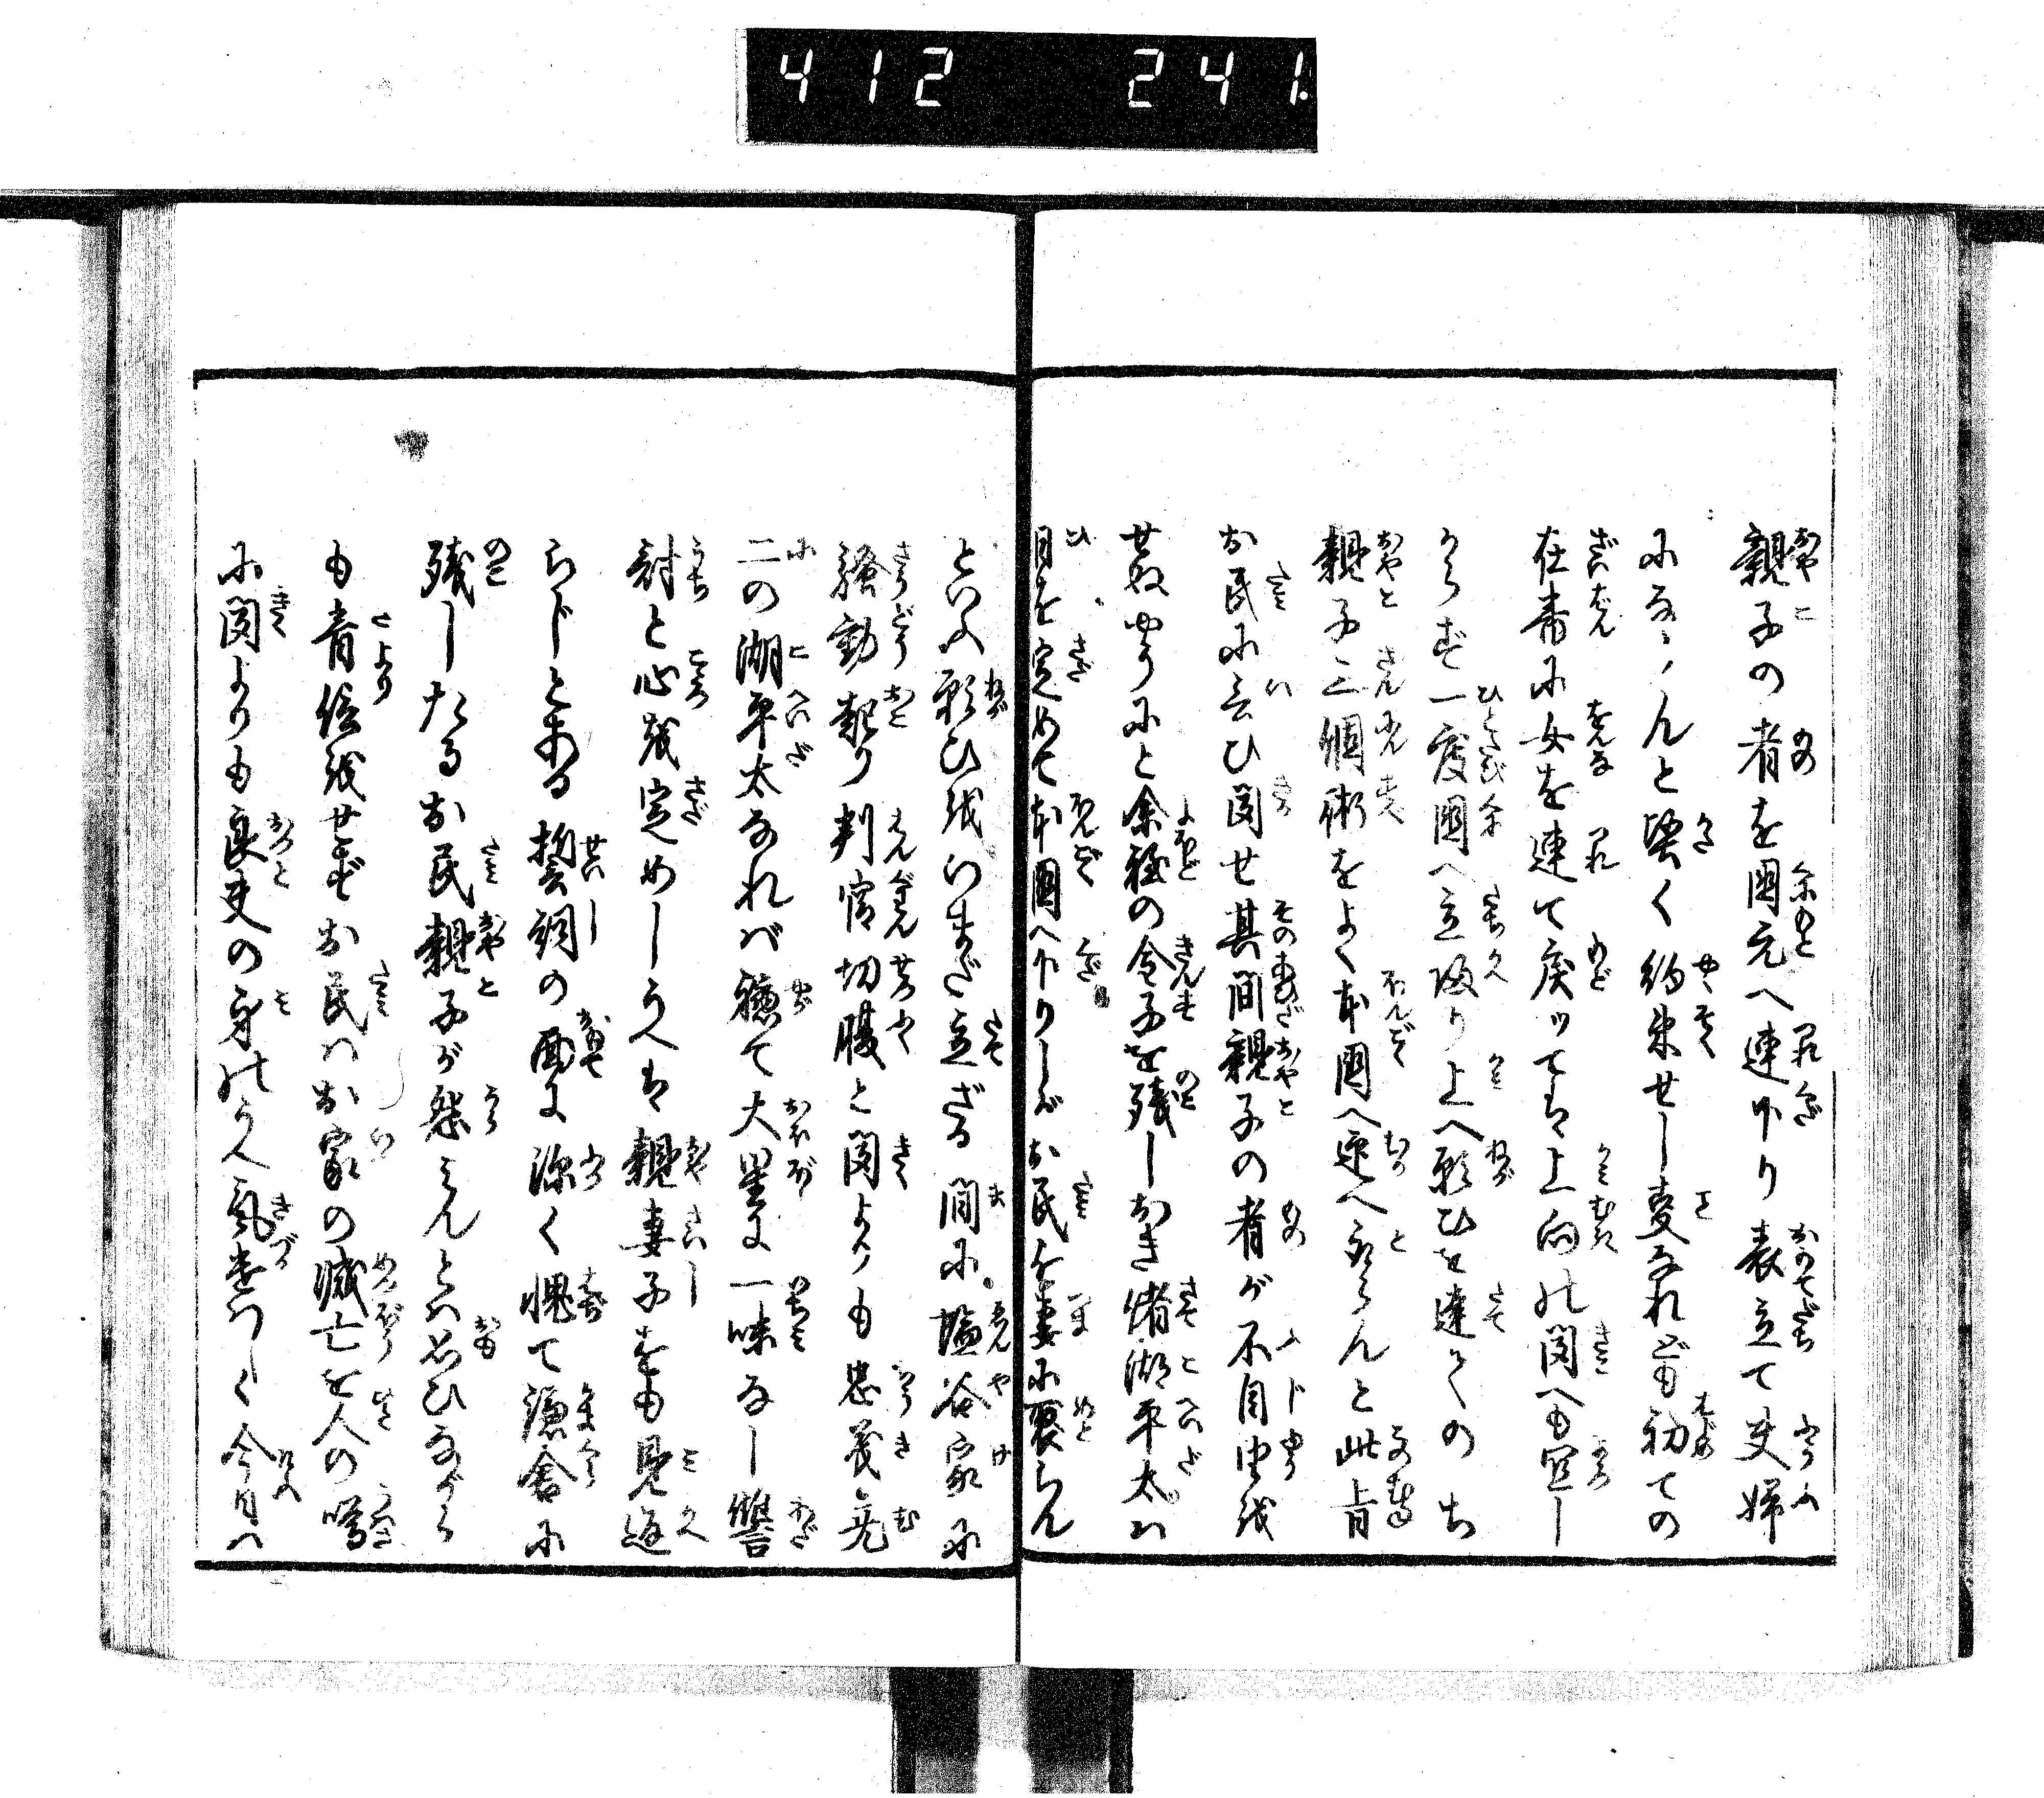 412 241
親子の者を国元へ連下り表立て夫婦
にならんと堅く約束せし事なれども初ての
在番に女を連て戻ツては上向の聞へも宜し
からず一度国へ立帰り上へ願ひを達てのち
親子三個術をよく本国へ迎へ取らんと此旨
お民に云ひ聞せ其間親子の者が不自由を
せぬやうにと余程の金子を残しおき偖湖平太ハ
日を定めて本国へ下りしがお民を妻に娶らん
といふ願ひをいまだ立ざる間に塩谷家に
騒動起り判官切腹と聞よりも忠義無
二の湖平太なれバ穏て大星に一味なし讐
討と心を定めしうへは親妻子をも見返
らじとある誓詞の面に深く愧て鎌倉に
残したるお民親子が楽みんとハ思ひながら
も音信をせずお民ハお家の滅亡を人の噂
に聞よりも良夫の身のうへ気遣ハしく今日ハ